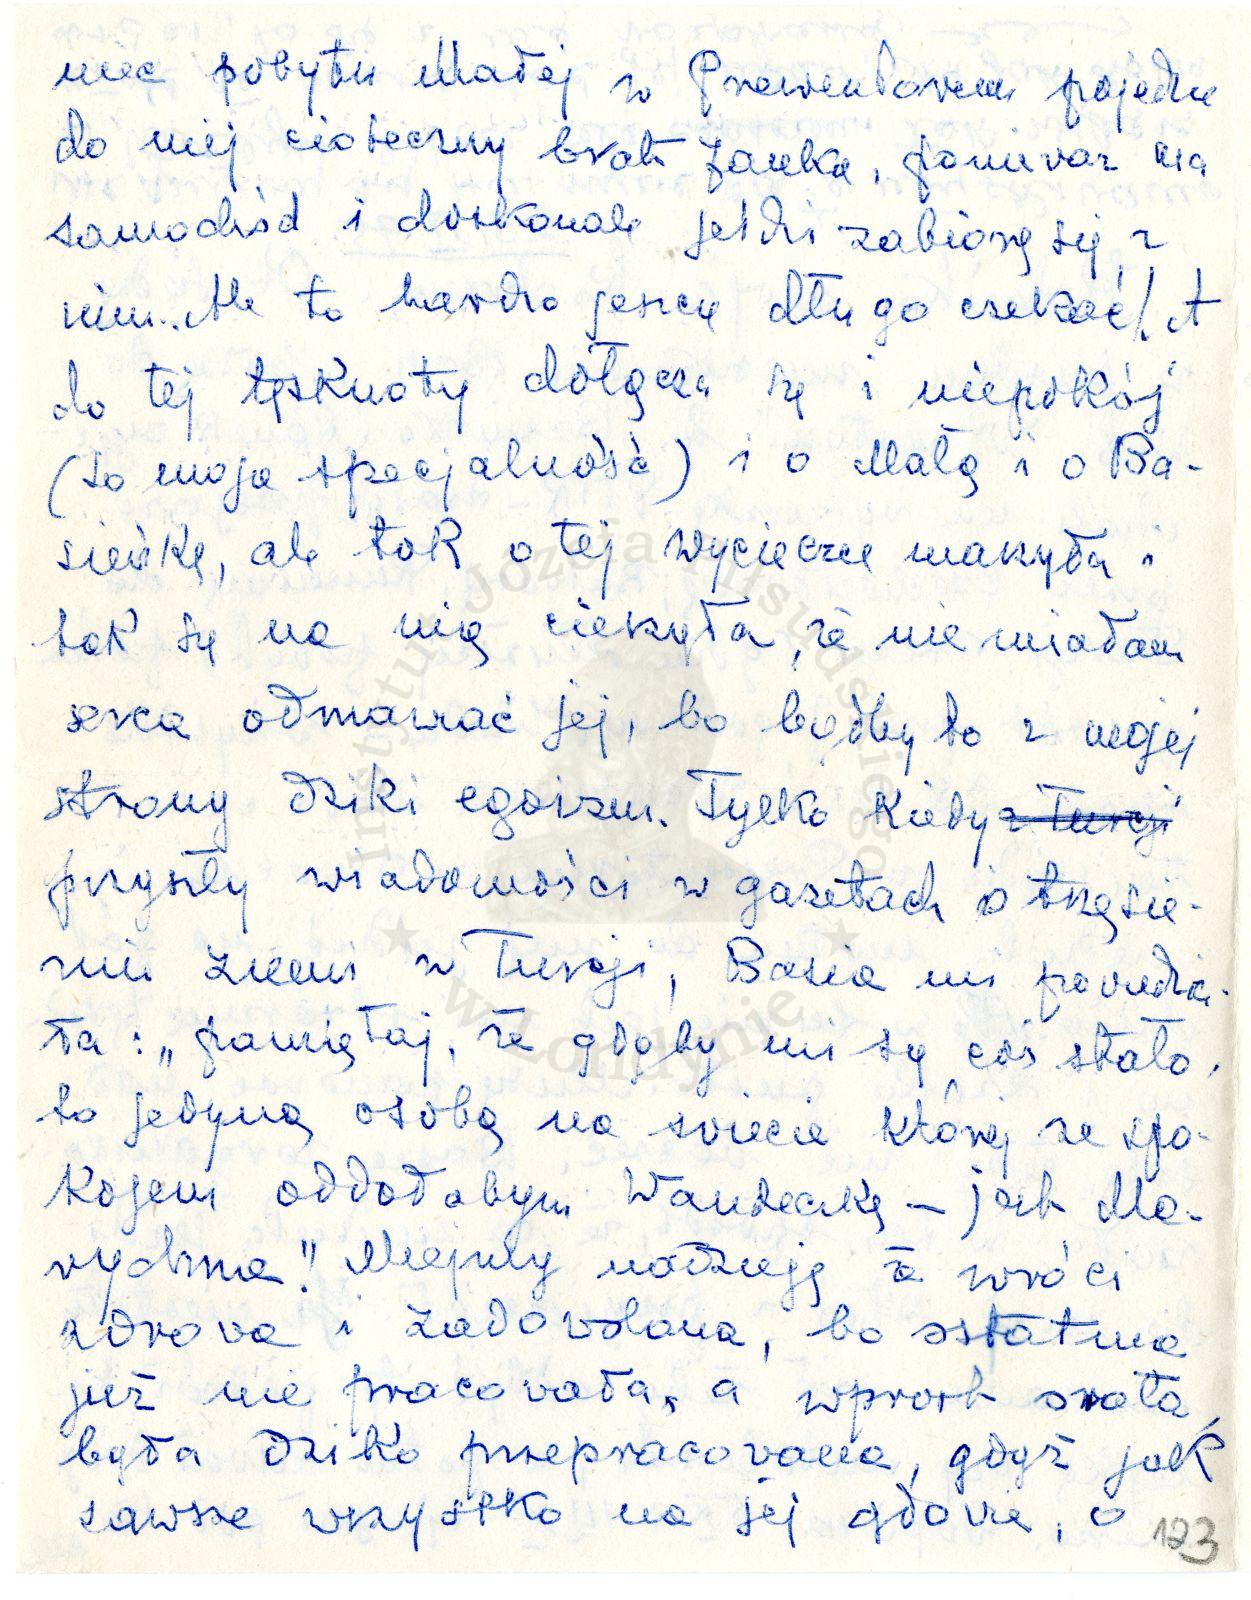 niec pobytu Małej w Prewentorium pojedzie
do niej cioteczny brat Janka, ponieważ ma
samochód i doskonale jeździ zabiorę się z
nim.. Ale to bardzo jeszcze długo czekać! A
do tej tęsknoty dołącza się i niepokój
(to moja specjalność) i o Małą i o Ba-
sieńkę, ale tak o tej wycieczce marzyła i
tak się na nią cieszyła, że nie miałam
serca odmawiać jej, bo byłby to z mojej
strony dziki egoizm. Tylko kiedy z Turcji
przyszły wiadomości w gazetach o trzęsie-
niu ziemi w Turcji, Basia mi powiedzia-
ła: „pamiętaj, że gdyby mi się coś stało,
to jedyną osobą na świecie której ze spo-
kojem oddałabym Wandeczkę – jest Ma-
rychna!" Miejmy nadzieję że wróci
zdrowa i zadowolona, bo ostatnio
już nie pracowała, a wprost orała,
była dziko przepracowana, gdyż jak
zawsze wszystko na jej głowie, o
123
Instytut Józefa Piłsudskiego
★ w Londynie ★